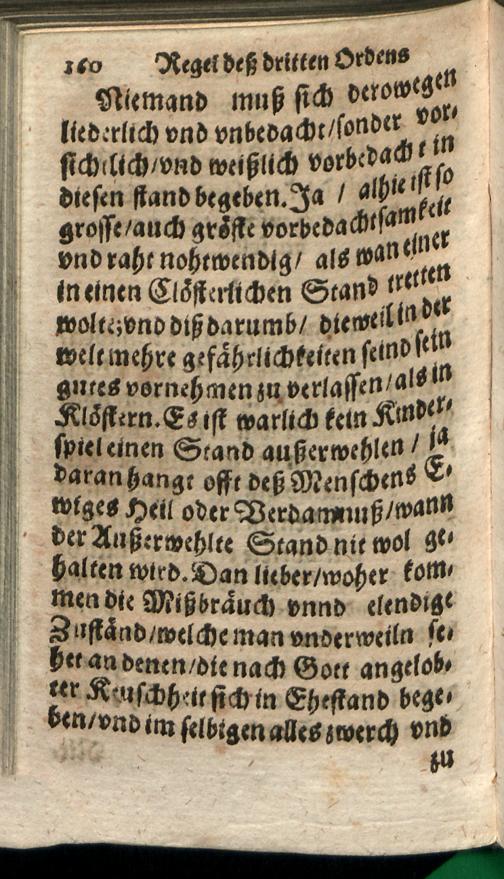 160 Regel deß dritten Ordens
Niemand muß sich derowegen
liederlich vnd vnbedacht/sonder vor-
sichtlich/vnd weißlich vorbedacht in
diesen stand begeben. Ja / alhie ist so
grosse/auch gröste vorbedachtsamkeit
vnd raht nohtwendig/ als wan einer
in einen Clösterlichen Stand tretten
wolte; vnd diß darumb/ dieweil in der
welt mehre gefährlichkeiten seind sein
gutes vornehmen zu verlassen/als in
Klöstern. Es ist warlich kein Kinder-
spiel einen Stand außerwehlen / ja
daran hangt offt deß Menschens E-
wiges Heil oder Verdamnuß/wann
der Außerwehlte Stand nit wol ge-
halten wird. Dan lieber/woher kom-
men die Mißbräuch vnnd elendige
Zuständ/welche man vnderweiln se-
het an denen/die nach Gott angelob-
ter Keuschheit sich in Ehestand bege-
ben/vnd im selbigen alles zwerch vnd
zu